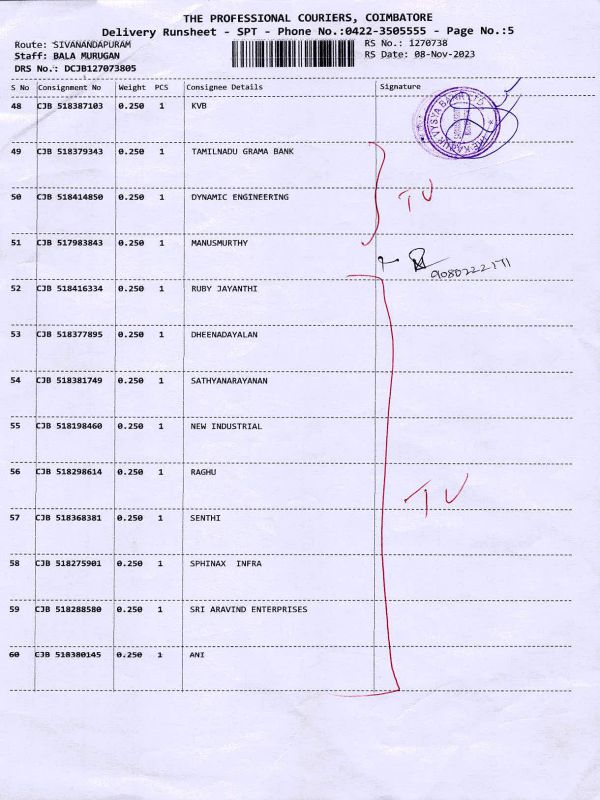 THE PROFESSIONAL COURIERS, COIMBATORE
Delivery Runsheet - SPT - Phone No.:0422-3505555 - Page No.:5
Route: SIVANANDAPURAM RS No.: 1270738
Staff: BALA MURUGAN RS Date: 08-Nov-2023
DRS No.: DCJB127073805
S No Consignment No Weight PCS Consignee Details Signature
48 CJB 518387103 0.250 1 KVB
49 CJB 518379343 0.250 1 TAMILNADU GRAMA BANK
50 CJB 518414850 0.250 1 DYNAMIC ENGINEERING TU
51 CJB 517983843 0.250 1 MANUSMURTHY
9080222171
52 CJB 518416334 0.250 1 RUBY JAYANTHI
53 CJB 518377895 0.250 1 DHEENADAYALAN
54 CJB 518381749 0.250 1 SATHYANARAYANAN
55 CJB 518198460 0.250 1 NEW INDUSTRIAL
56 CJB 518298614 0.250 1 RAGHU TU
57 CJB 518368381 0.250 1 SENTHI
58 CJB 518275901 0.250 1 SPHINAX INFRA
59 CJB 518288580 0.250 1 SRI ARAVIND ENTERPRISES
60 CJB 518380145 0.250 1 ANI